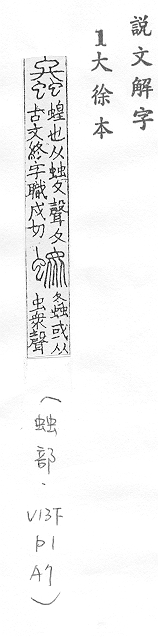 説文解字
1大徐本
螽
蝗也从䖵夂聲夂
古文終字職戎切
𧑄
螽或从
虫眾聲
（䖵部．
V13下
P1
A7）